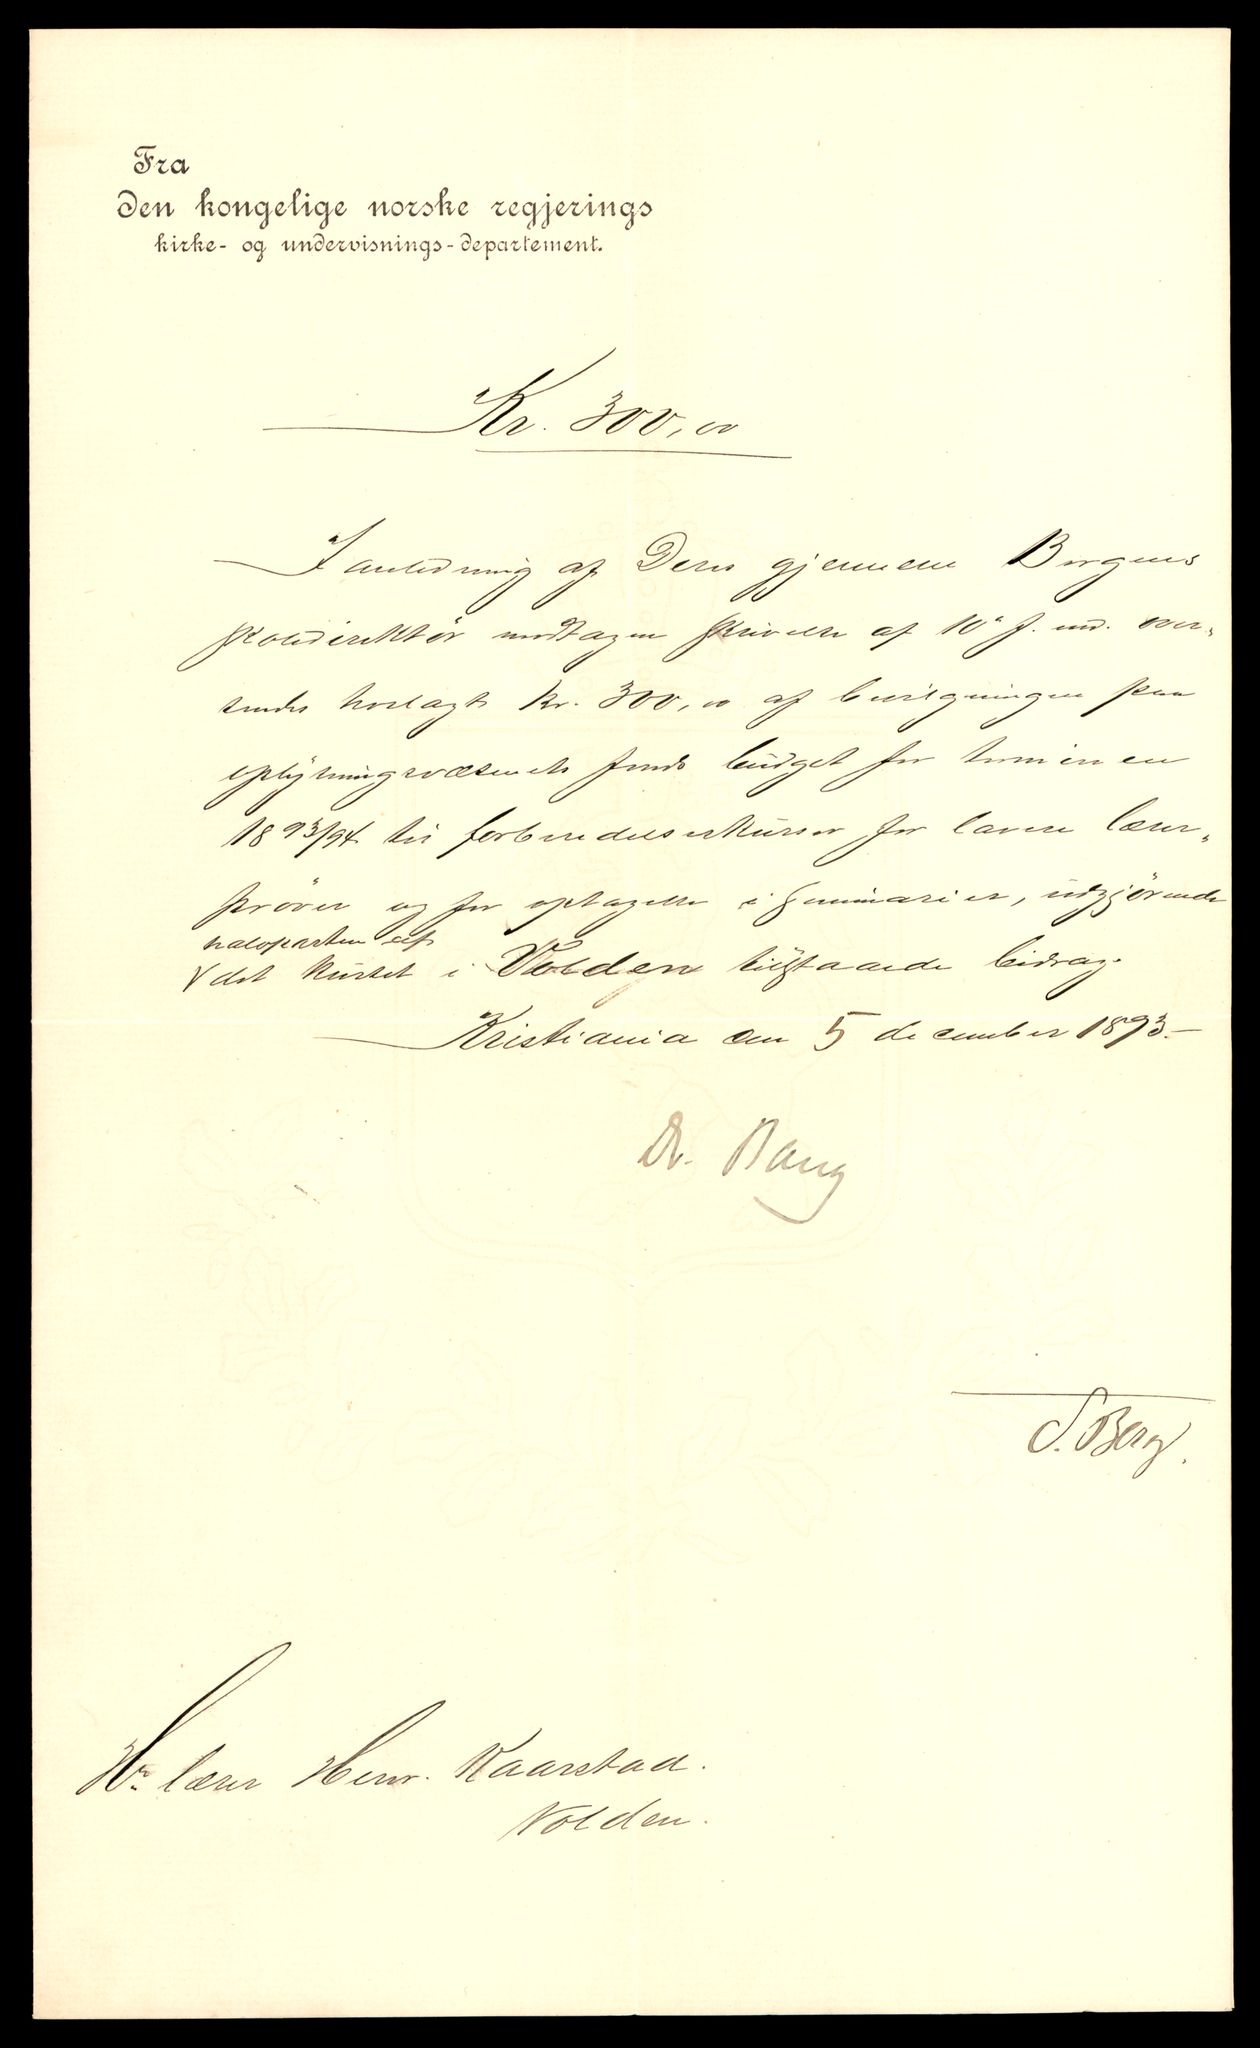 Fra
Den kongelige norske regjerings
kirke- og undervisnings-departement.
Kr. 300,00
I anledning af Deres gjennem Bergens
skoledirektør modtagne skrivelse af 10de f. md. over-
sendes hoslagt kr. 300,00 af bevilgningen paa
oplysningsvæsenets fonds budget for terminen
1893/94 til forberedelseskurser for lavere lærer-
prøver og for optagelse i seminarier, udgjørende
halvparten af
det kurset i Volden tilstaaede bidrag.
Kristiania den 5 december 1893.
Dr. Bang
S. Berg.
Hr. lærer Henr. Kaarstad.
Volden.